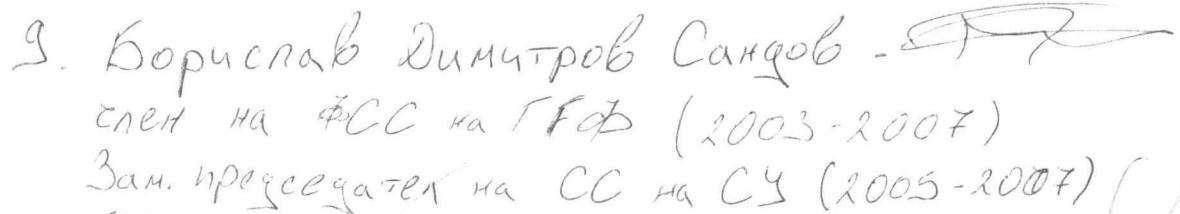 9. Борислав Димитров Сандов -
член на ФСС на ГГФ (2003-2007)
Зам. председател на СС на СУ (2005-2007) (